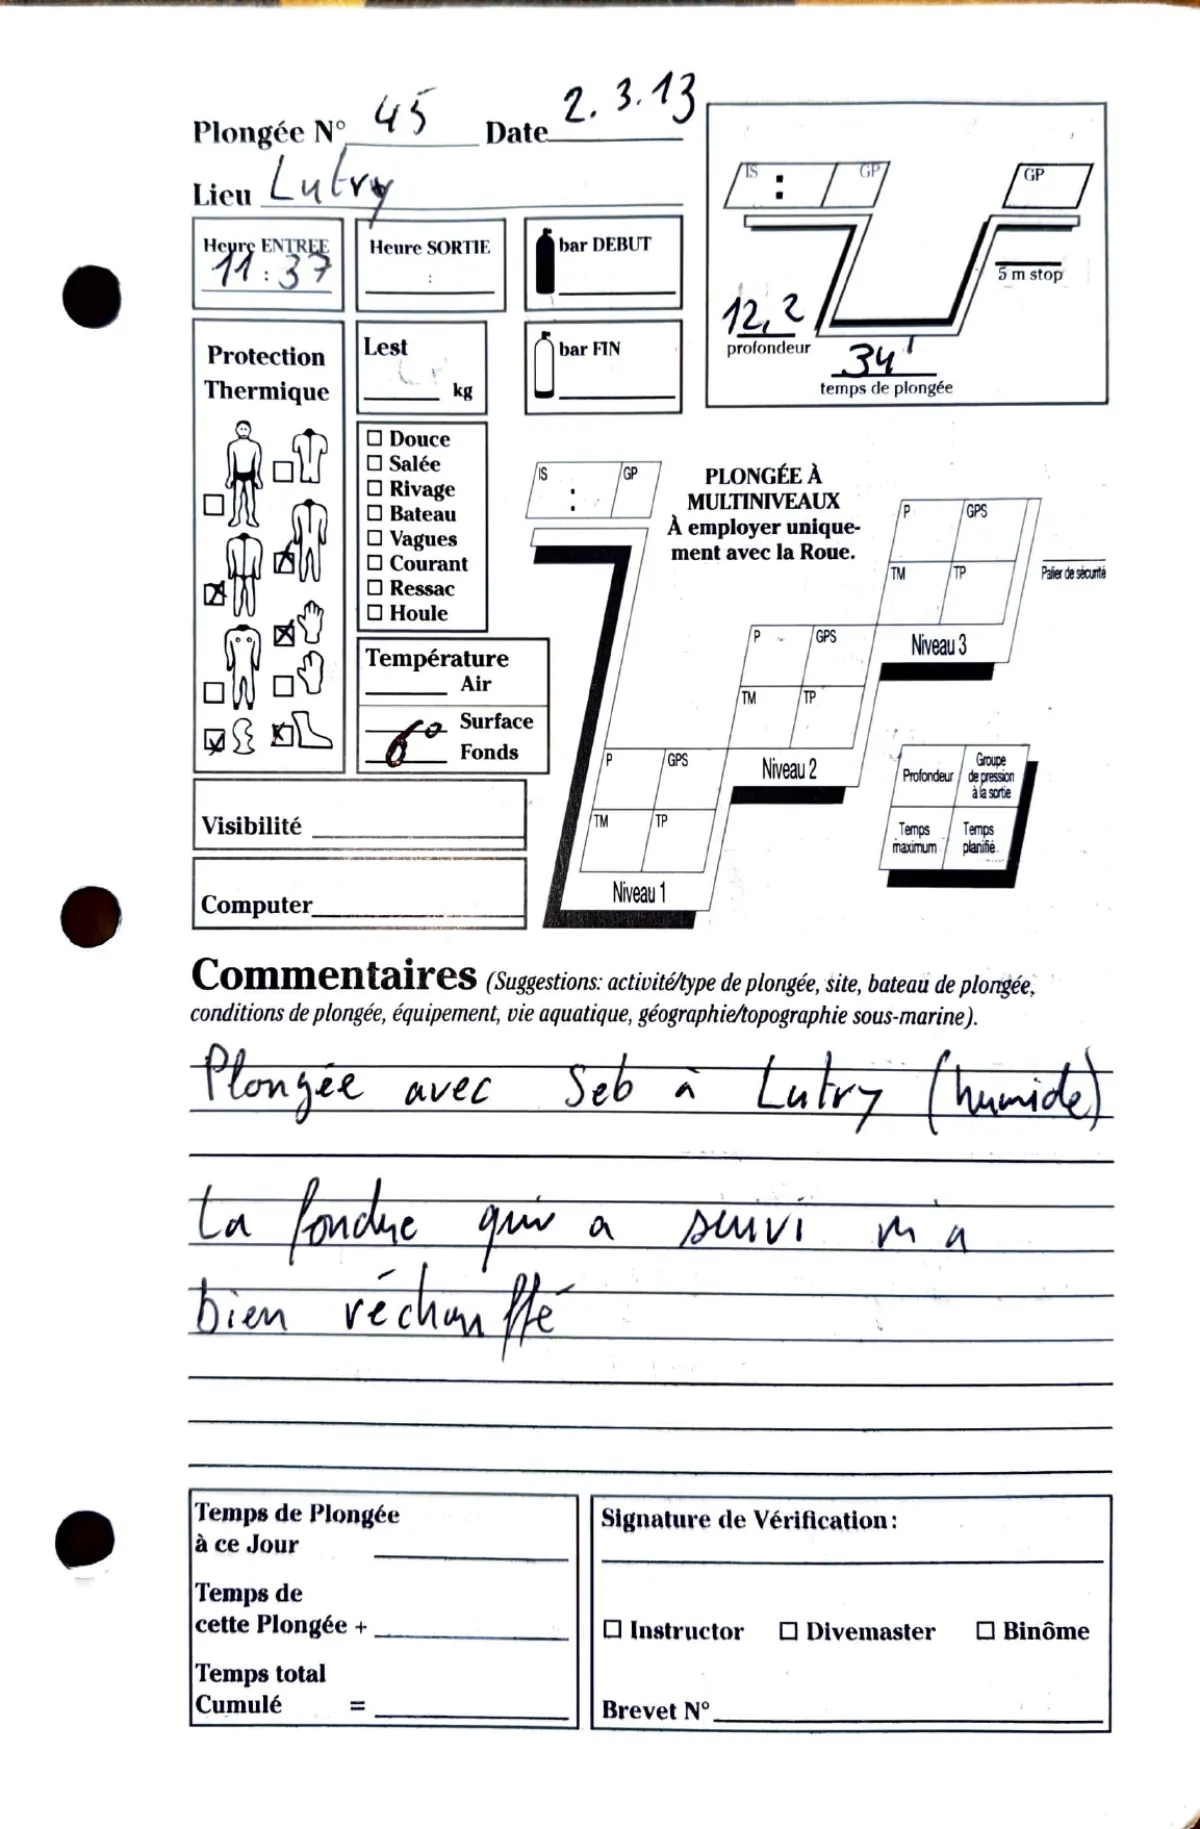 Plongée N° 45 Date 2.3.13
Lieu Lutry
Heure ENTREE
11:37
Heure SORTIE
:
bar DEBUT
bar FIN
IS : GP
GP
5 m stop
12,2
profondeur
34'
temps de plongée
Protection
Thermique
Lest
kg
Douce
Salée
Rivage
Bateau
Vagues
Courant
Ressac
Houle
Température
Air
Surface
6°
Fonds
Visibilité
Computer
IS : GP
PLONGÉE À
MULTINIVEAUX
À employer unique-
ment avec la Roue.
P GPS
TM TP
Niveau 3
Palier de sécurité
P GPS
TM TP
Niveau 2
P GPS
TM TP
Niveau 1
Profondeur
Groupe
de pression
à la sortie
Temps
maximum
Temps
planifié
Commentaires (Suggestions: activité/type de plongée, site, bateau de plongée,
conditions de plongée, équipement, vie aquatique, géographie/topographie sous-marine).
Plongée avec Seb à Lutry (humide)
La fondue qui a suivi m'a
bien réchauffé
Temps de Plongée
à ce Jour
Temps de
cette Plongée +
Temps total
Cumulé =
Signature de Vérification:
Instructor Divemaster Binôme
Brevet N°